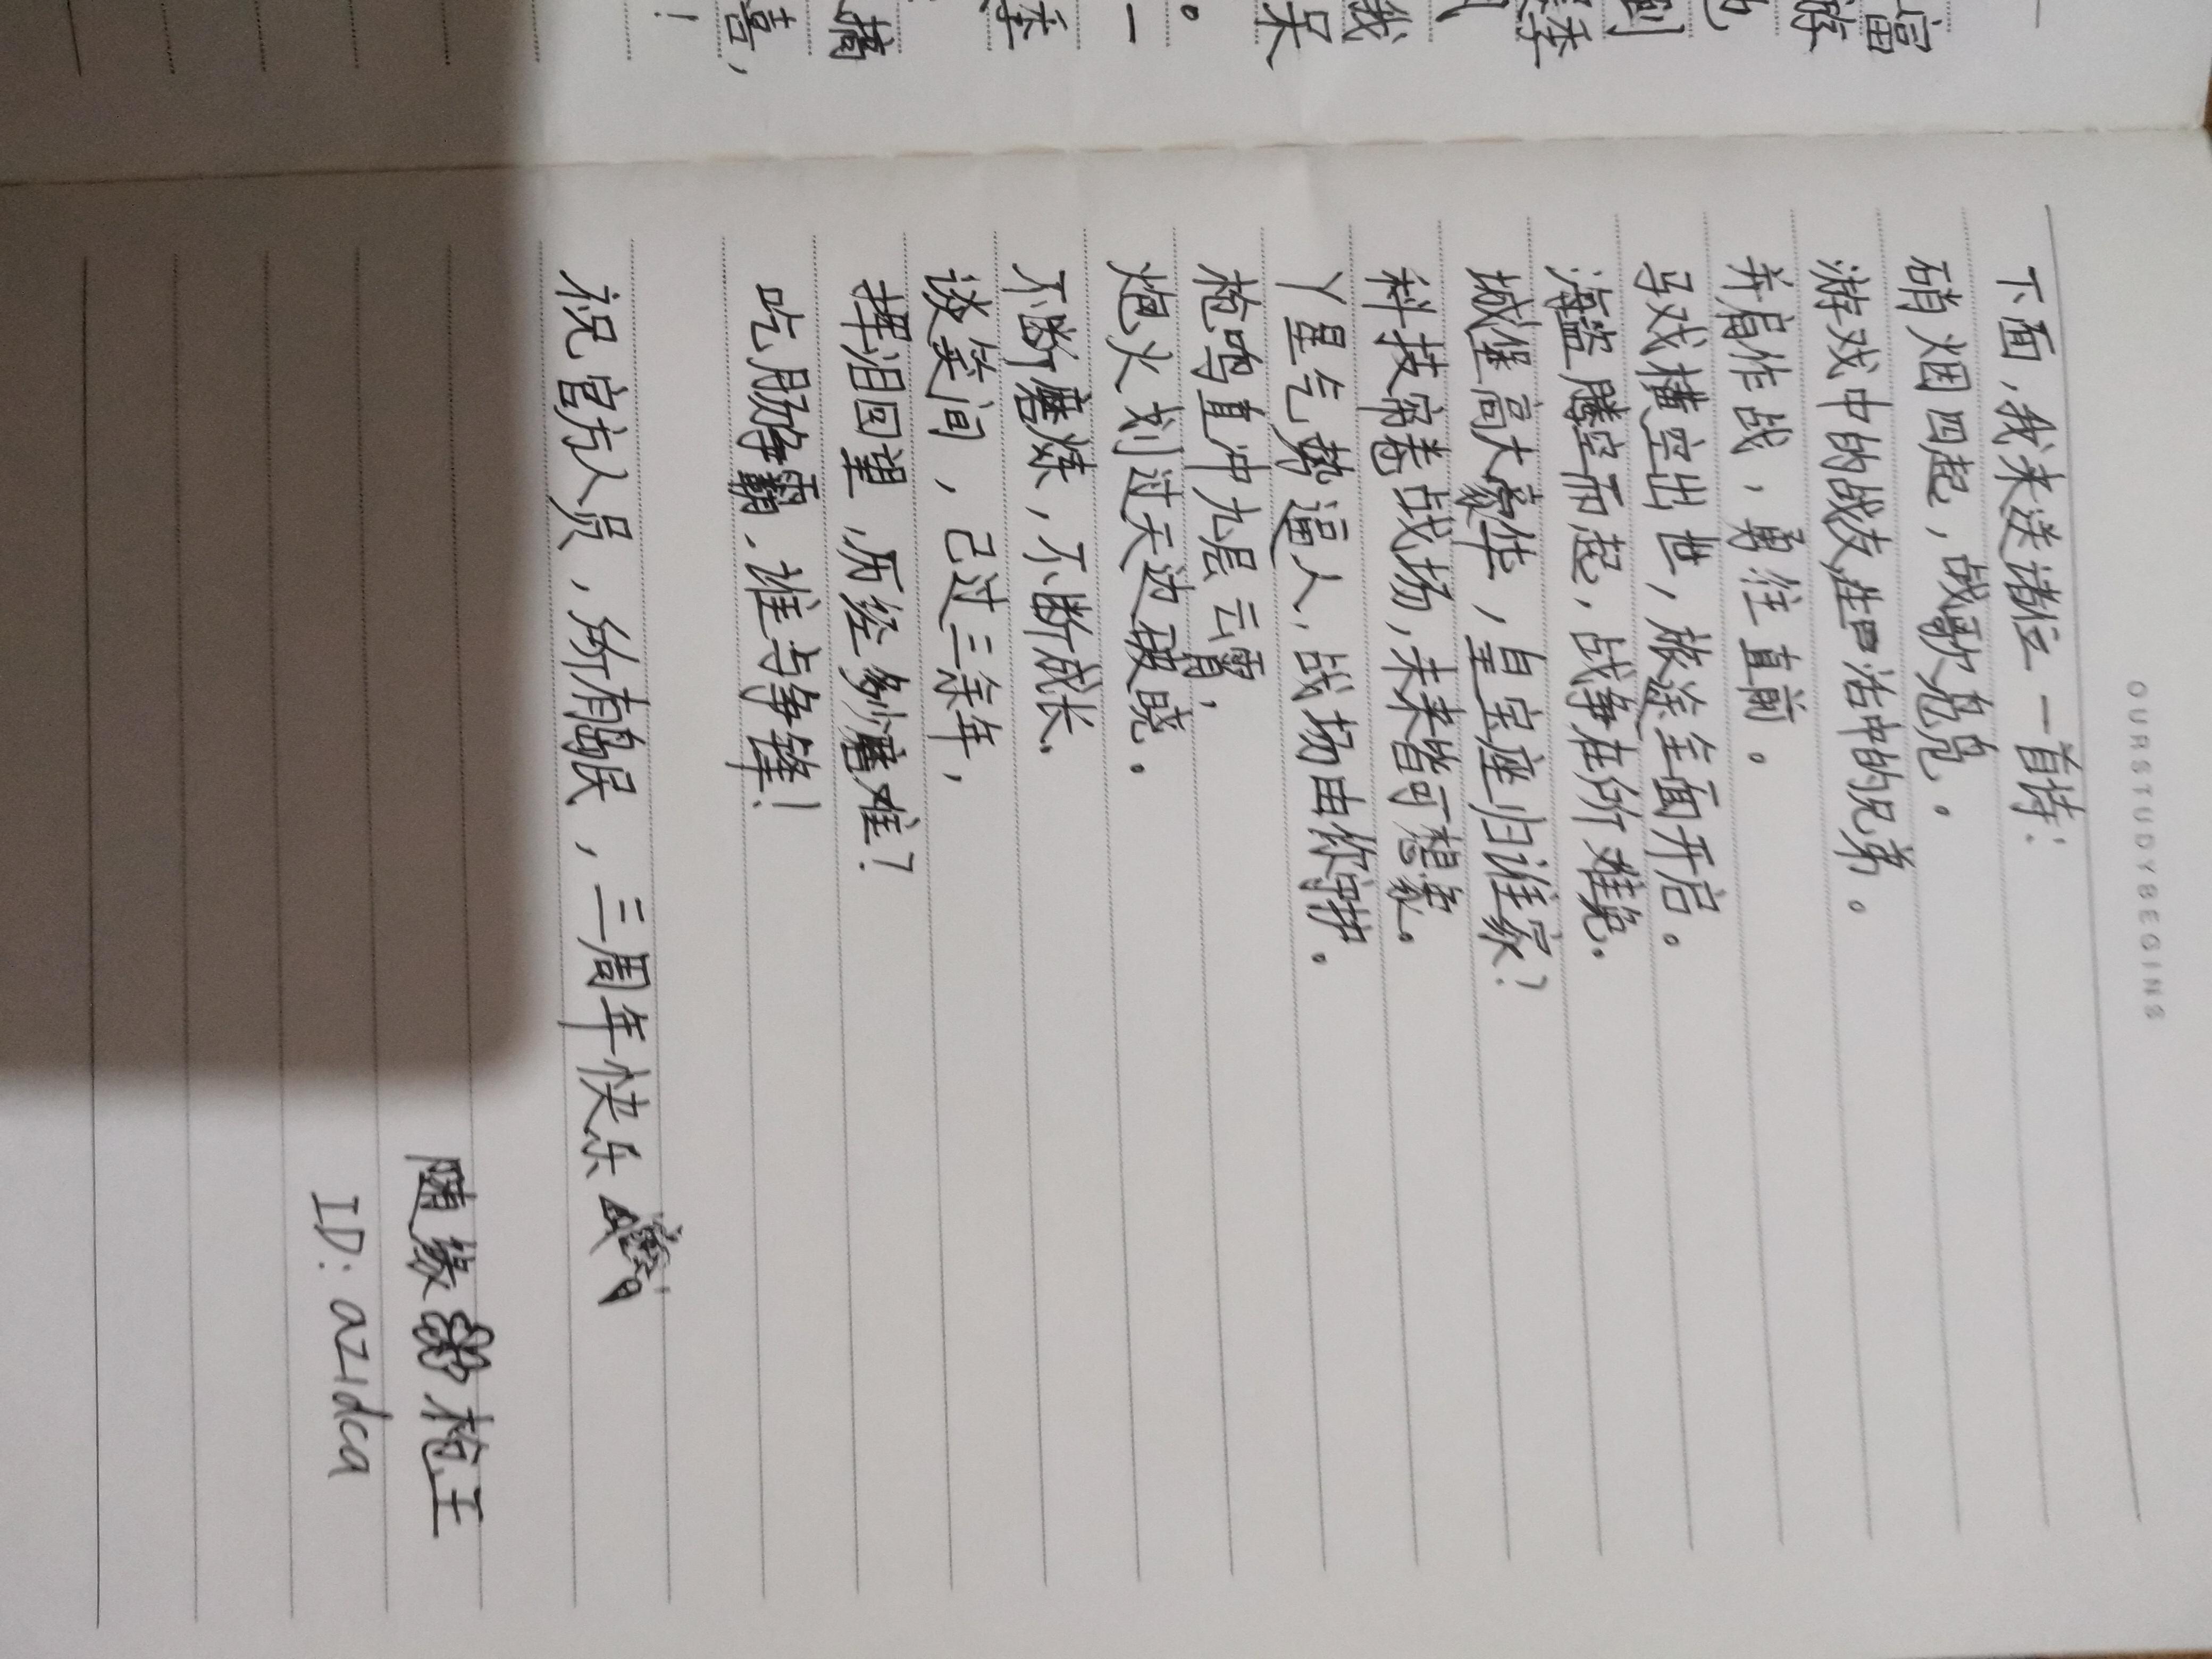 OURSTUDYBEGINS
下面,我来送诸位一首诗:
硝烟四起,战歌
游戏中的战友生活中的兄弟。
并肩作战,勇往直前。
横空出世,旅途全面开启。
海盗腾空而起,战争在所难免.
城堡高大豪华,皇座归谁家?
科技席卷战场,未来皆可想象.
星气势逼人,战场由你守护.
枪鸣直冲九层云霄,
炮火划过天边破晓.
不断磨炼,不断成长.
谈笑间,已过三余年,
挥泪回望,历经多少磨难?
吃肋争霸.谁与争锋!
祝官方人员,所有岛民,三周年快乐
随缘枪王
ID: az1dca